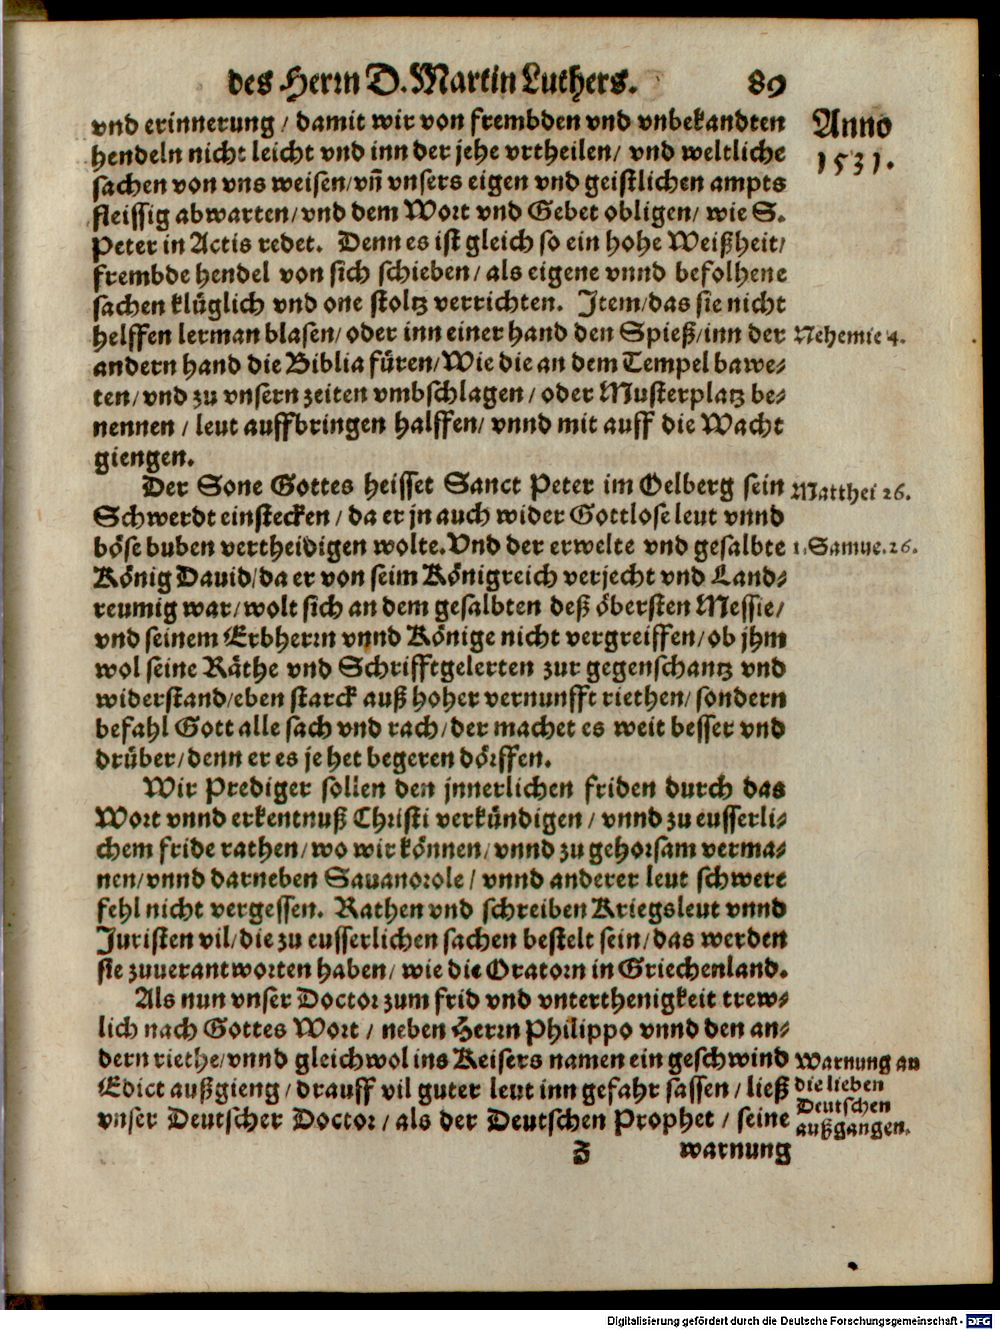 des Herrn D. Martin Luthers. 89
vnd erinnerung / damit wir von frembden vnd vnbekandten
hendeln nicht leicht vnd inn der jehe vrtheilen / vnd weltliche
sachen von vns weisen / vñ vnsers eigen vnd geistlichen ampts
fleissig abwarten / vnd dem Wort vnd Gebet obligen / wie S.
Peter in Actis redet. Denn es ist gleich so ein hohe Weißheit /
frembde hendel von sich schieben / als eigene vnnd befolhene
sachen klüglich vnd one stoltz verrichten. Item / das sie nicht
helffen lerman blasen / oder inn einer hand den Spieß / inn der
andern hand die Biblia füren / Wie die an dem Tempel bawe-
ten / vnd zu vnsern zeiten vmbschlagen / oder Musterplatz be-
nennen / leut auffbringen halffen / vnnd mit auff die Wacht
giengen.
Der Sone Gottes heisset Sanct Peter im Oelberg sein
Schwerdt einstecken / da er jn auch wider Gottlose leut vnnd
böse buben vertheidigen wolte. Vnd der erwelte vnd gesalbte
König Dauid / da er von seim Königreich verjecht vnd Land-
reumig war / wolt sich an dem gesalbten deß öbersten Messie /
vnd seinem Erbherrn vnnd Könige nicht vergreiffen / ob jhm
wol seine Räthe vnd Schrifftgelerten zur gegenschantz vnd
widerstand / eben starck auß hoher vernunfft riethen / sondern
befahl Gott alle sach vnd rach / der machet es weit besser vnd
drüber / denn er es je het begeren dörffen.
Wir Prediger sollen den jnnerlichen friden durch das
Wort vnnd erkentnuß Christi verkündigen / vnnd zu eusserli-
chem fride rathen / wo wir können / vnnd zu gehorsam verma-
nen / vnnd darneben Sauanorole / vnnd anderer leut schwere
fehl nicht vergessen. Rathen vnd schreiben Kriegsleut vnnd
Juristen vil / die zu eusserlichen sachen bestelt sein / das werden
sie zuuerantworten haben / wie die Oratorn in Griechenland.
Als nun vnser Doctor zum frid vnd vnterthenigkeit trew-
lich nach Gottes Wort / neben Herrn Philippo vnnd den an-
dern riethe / vnnd gleichwol ins Keisers namen ein geschwind
Edict außgieng / drauff vil guter leut inn gefahr sassen / ließ
vnser Deutscher Doctor / als der Deutschen Prophet / seine
Z warnung
Anno
1531.
Nehemie 4.
Matthei 26.
1. Samue. 26.
Warnung an
die lieben
Deutschen
außgangen.
Digitalisierung gefördert durch die Deutsche Forschungsgemeinschaft - DFG